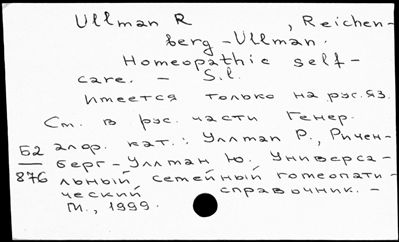 Ullman R , Reichen-
berg-Ullman.
Homeopathic self-
care. - S.l.
Имеется только на рус.яз.
См. в рус. части Генер.
алф. кат.: Уллман Р., Ричен-
Б2
берг-Уллман Ю. Универса-
876
льный семейный гомеопати-
ческий справочник. -
М., 1999.